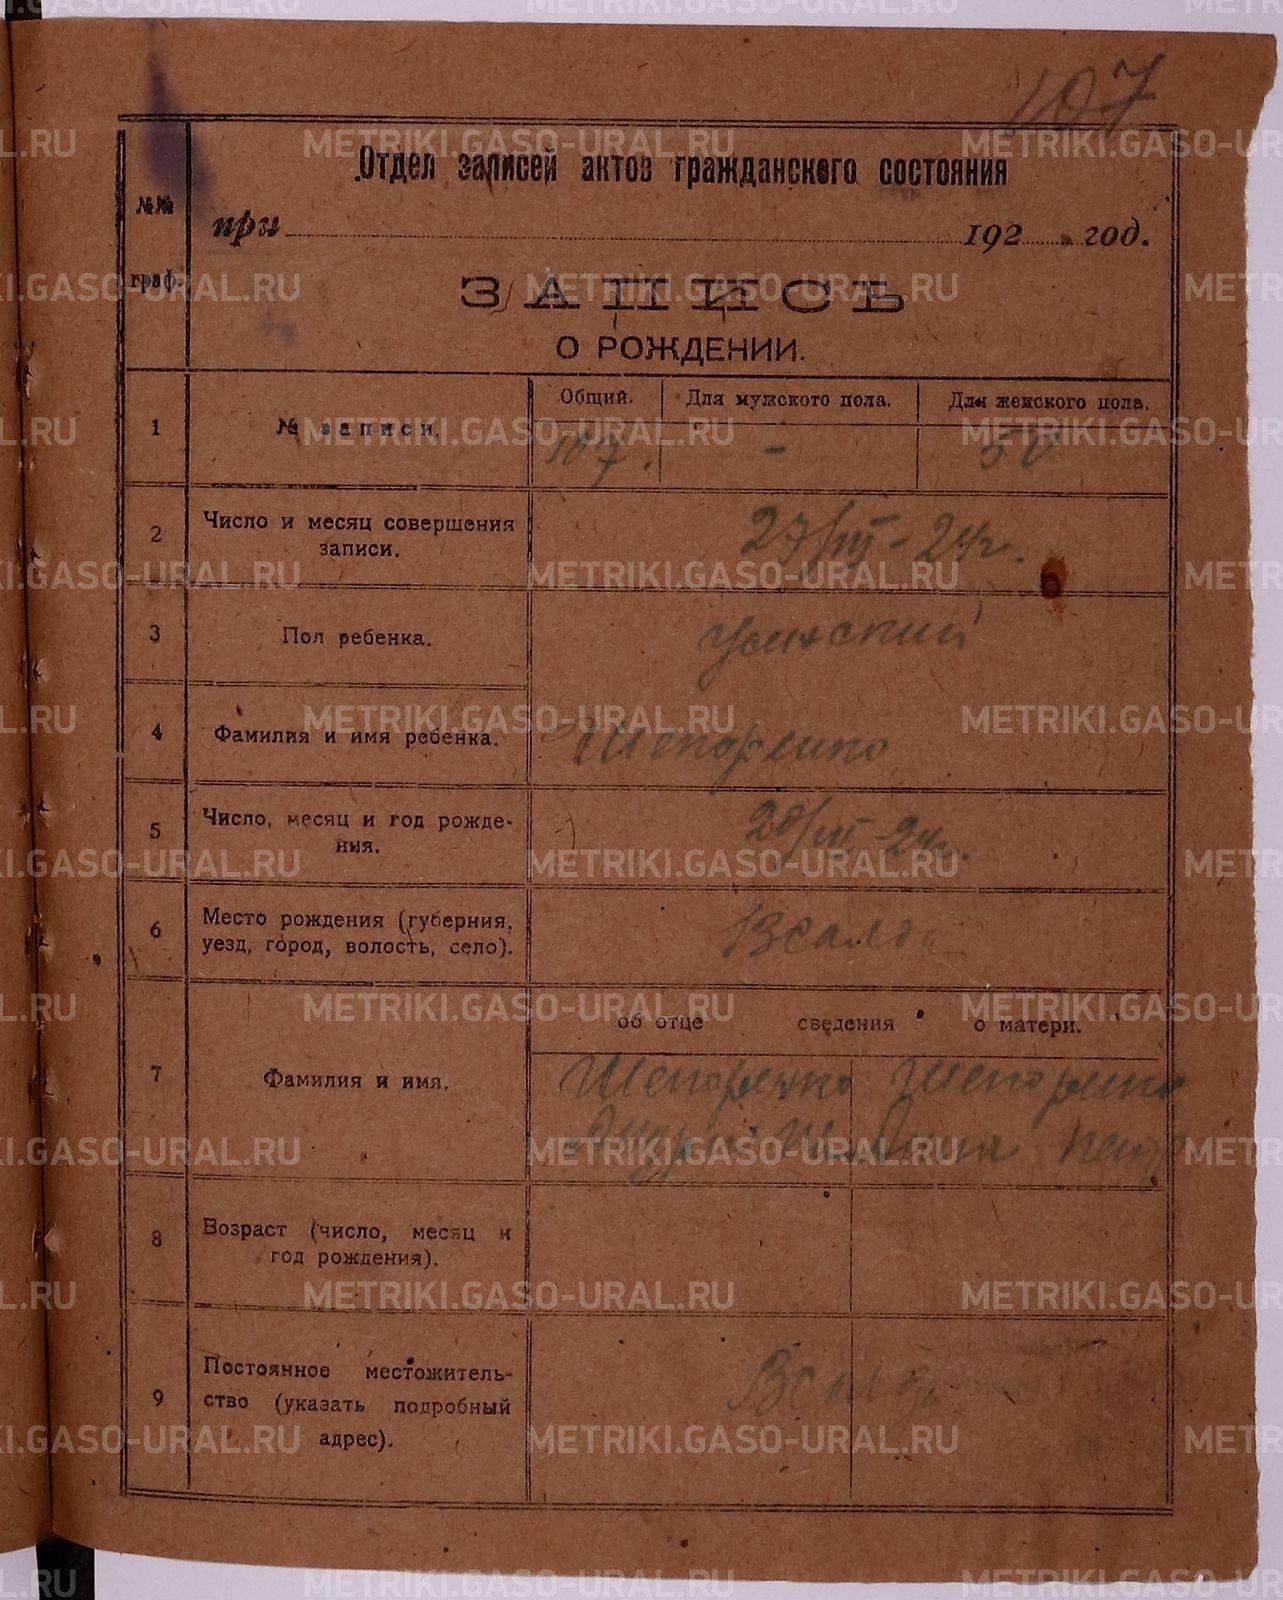 107
Отдел записей актов гражданского состояния
№№ граф.
при 192 год.
ЗАПИСЬ
О РОЖДЕНИИ.
1 № записи. Общий. Для мужского пола. Для женского пола.
107. - 50
2 Число и месяц совершения записи. 27/III - 24 г.
3 Пол ребенка. женский
4 Фамилия и имя ребенка.
5 Число, месяц и год рожде-
ния. 20/III - 24 г.
6 Место рождения (губерния,
уезд, город, волость, село). В Салда
об отце сведения о матери.
7 Фамилия и имя.
8 Возраст (число, месяц и
год рождения).
9 Постоянное местожитель-
ство (указать подробный
адрес).
METRIKI.GASO-URAL.RU